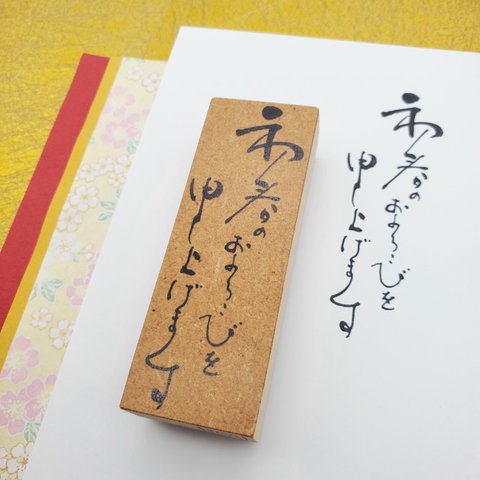 初春の
およろこびを
申し上げます
初春の
およろこびを
申し上げます